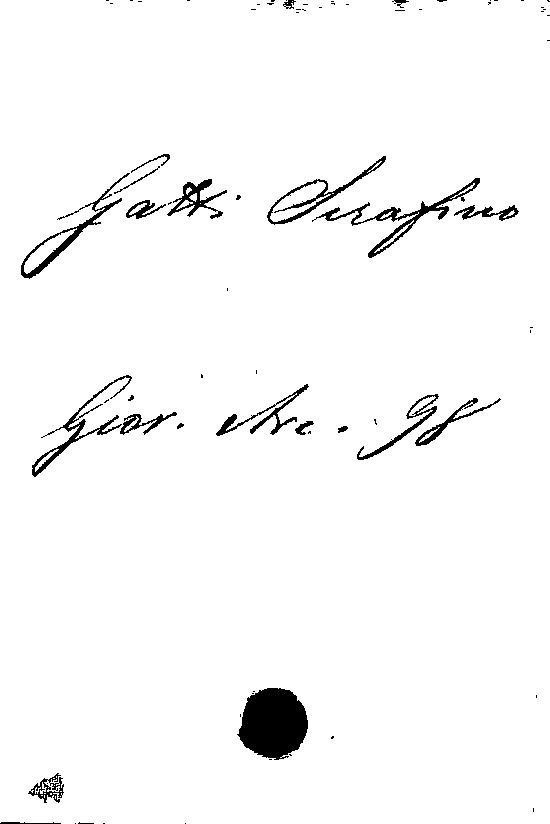 Gatti Serafino
Gior. Arc. 98